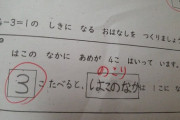 4-3=1の しきに なる おはなしを つくりましょう
はこの なかに あめが 4こ はいって います。
のこり
3こ たべると、はこのなかは 1こに